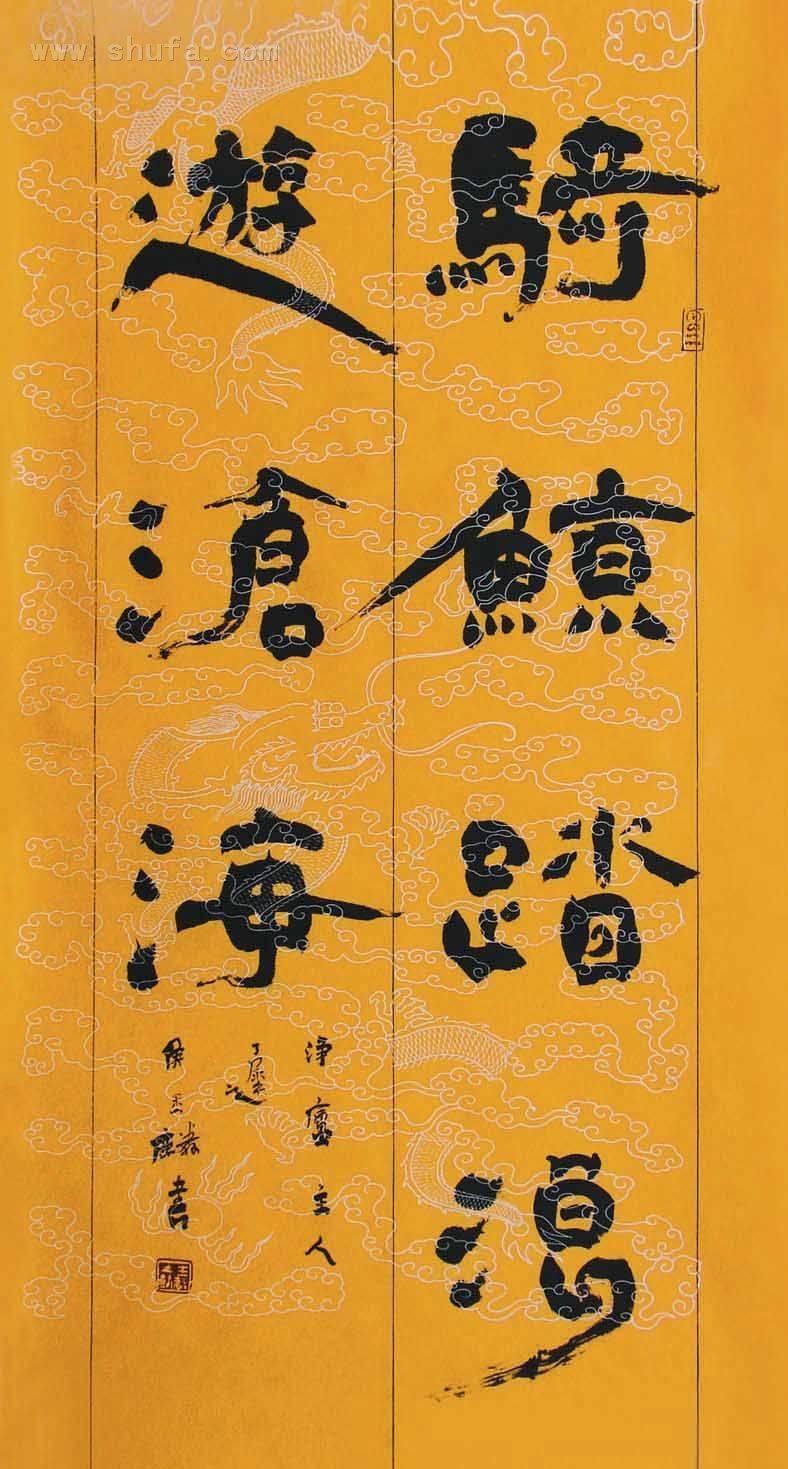 www.shufa.com
騎鯨踏浪
遊滄海
淨廬主人
侯玉麟書